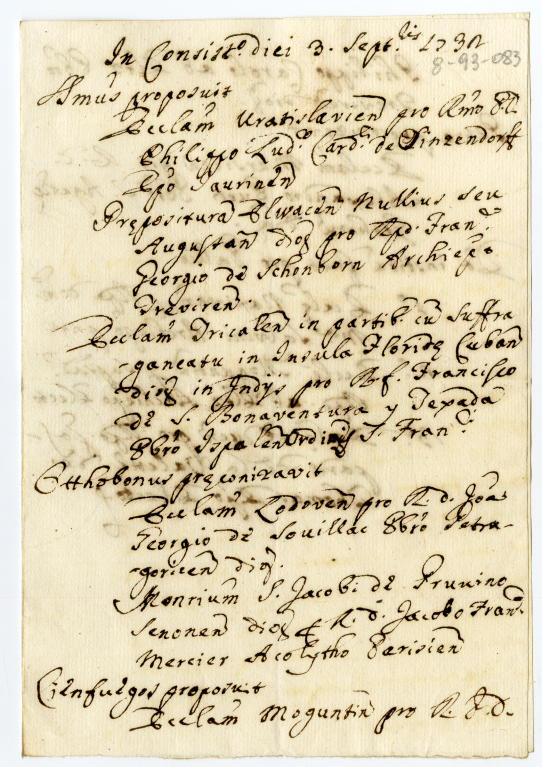 In Consist.o diei 3. Sept.bis 1732
8-93-083
Smus proposuit
Ecclam Uratislavien pro Rmo D.
Philippo Lud.o Card.li de Sinzendorff
Epo Jaurinen
Prepositura Elwacen Nullius seu
Augustan dioc pro Rpd. Fran.co
Georgio de Schonborn Archiepo
Treviren.
Ecclam Tricalen in partib. cu suffra
-ganeatu in Insula Floride Cuban
dioc in Indijs pro R.f. Francisco
de S. Bonaventura y Texada
Pbro Ispalen Ordinis S. Fran.ci
Otthobonus preconizavit
Ecclam Lodoven pro R. d. Joa.
Georgio de Souillac Pbro Petra-
-goricen dioc.
Monrium S. Jacobi de Pruvino
Senonen dioc R. d. Jacobo Fran.co
Mercier Acolytho Parisien
Cienfuegos proposuit
Ecclam Moguntin pro R. P. D.